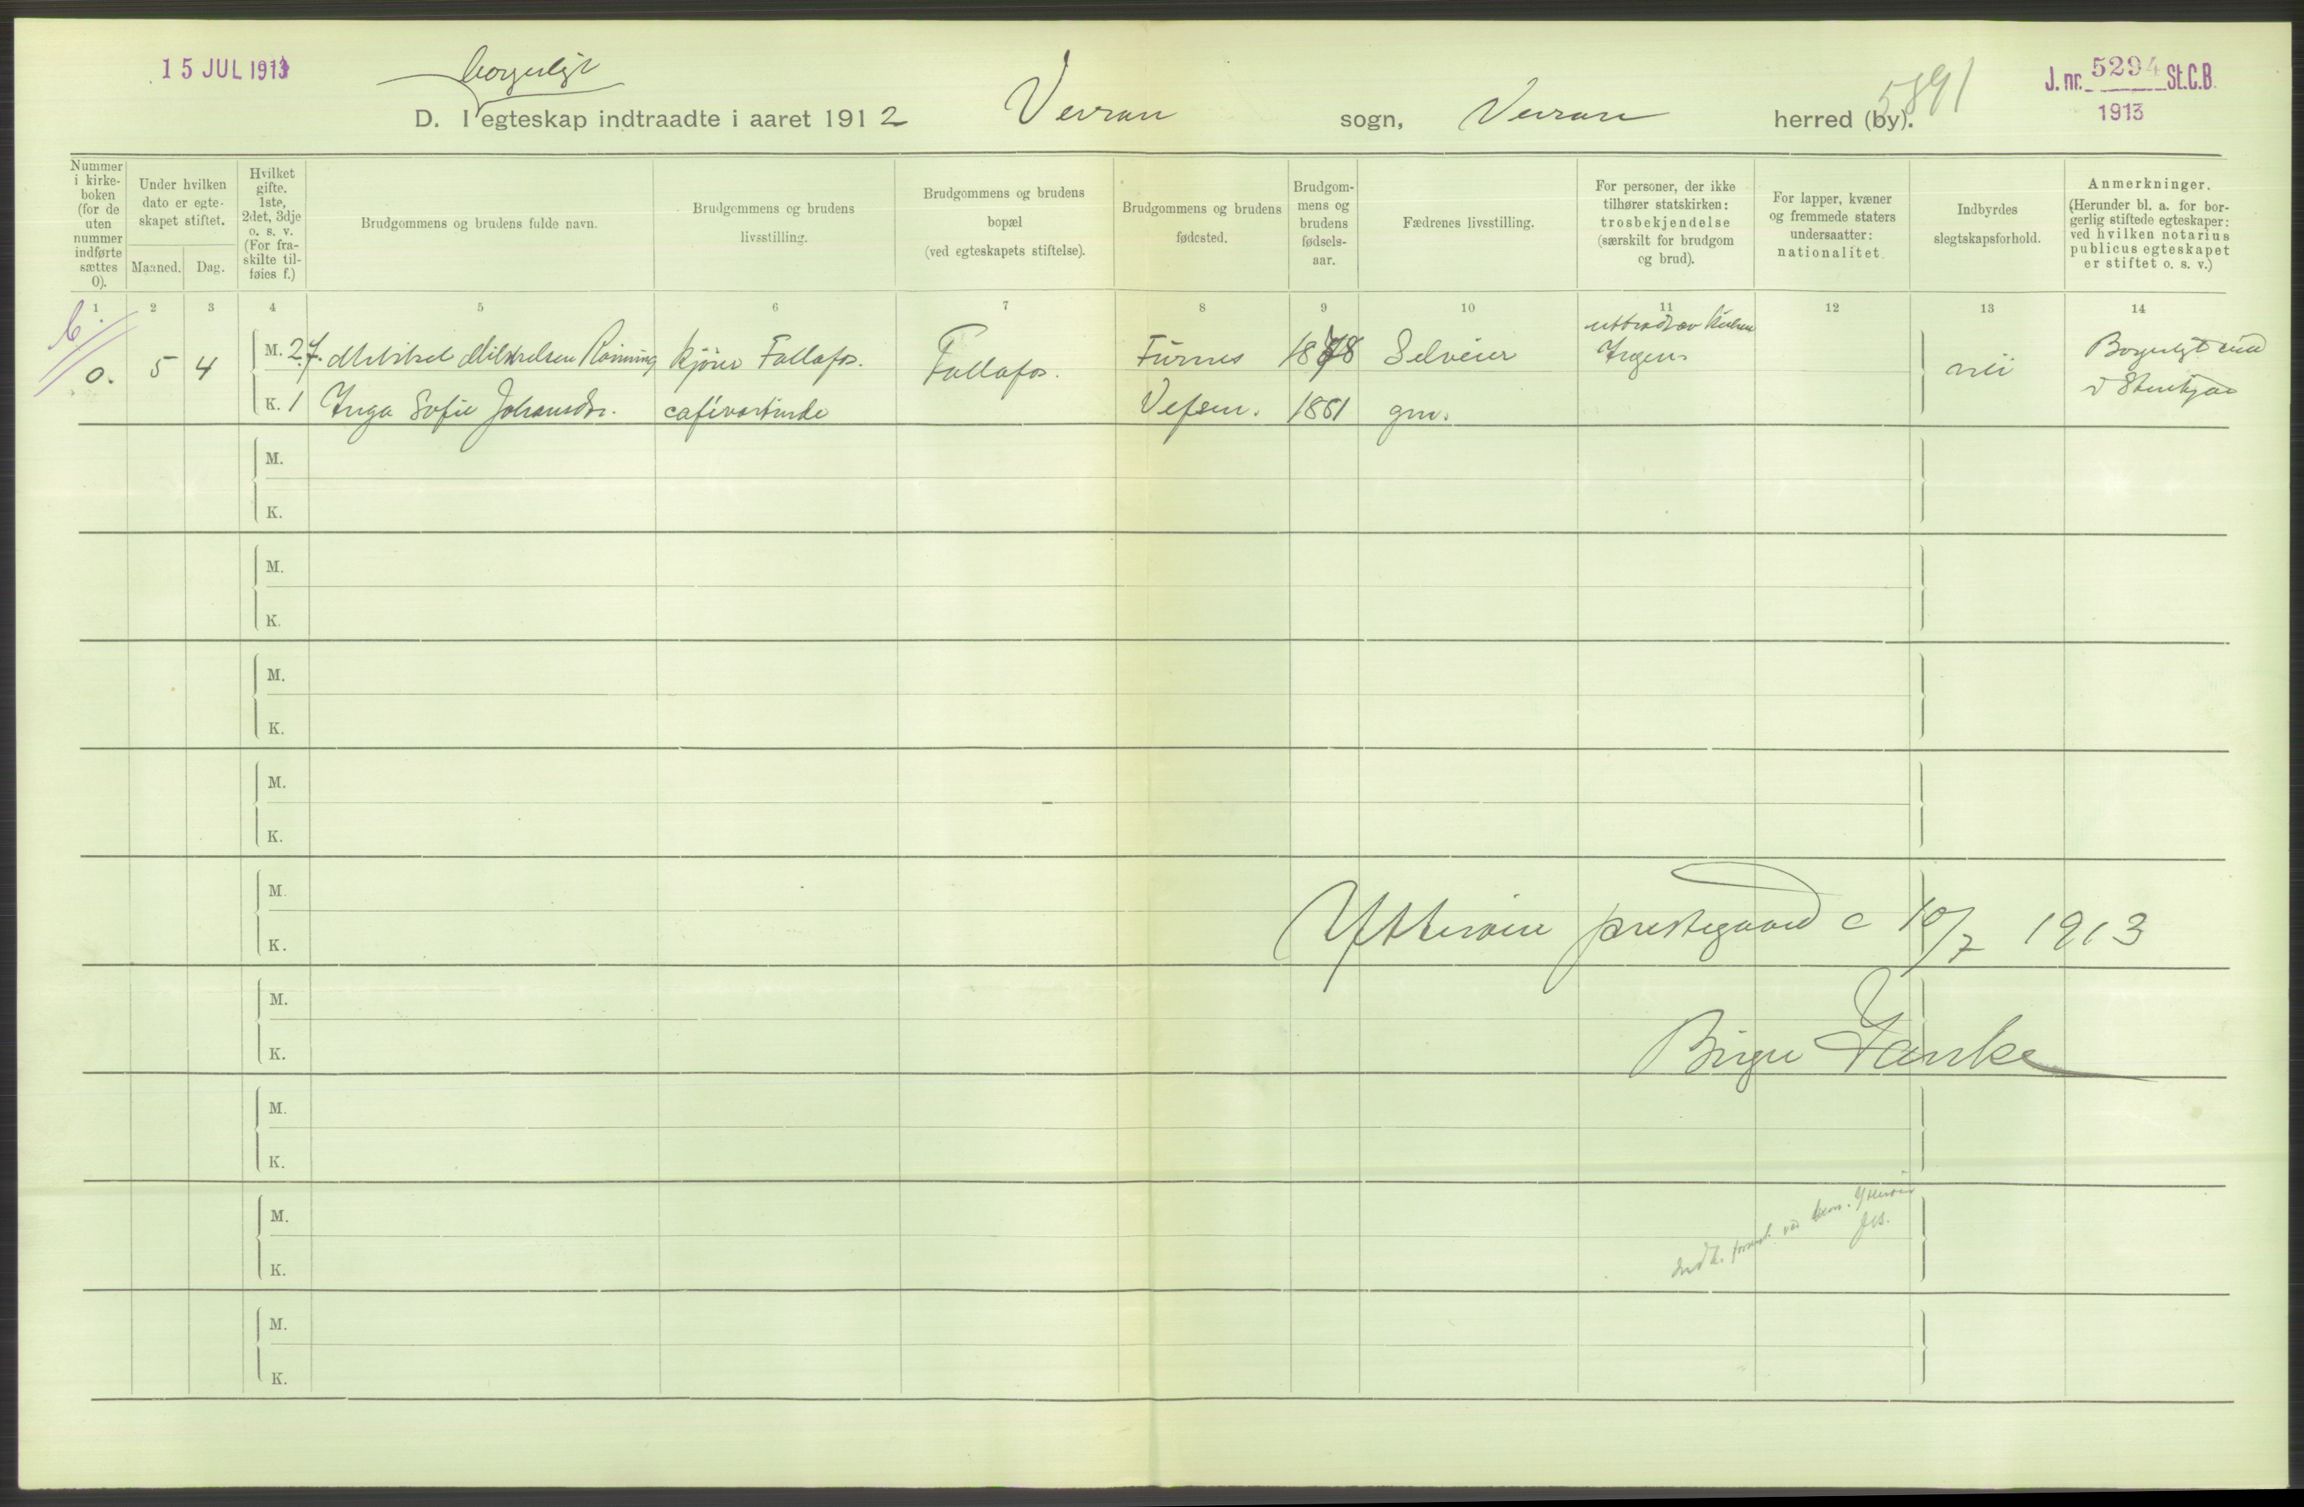 15 JUL 1913
borgerligt
5891
J. nr. 5294 St.C.B.
1913
D. I egteskap indtraadte i aaret 1912 Verran sogn, Verran herred (by).
Nummer i kirke-boken (for de uten nummer indførte sættes 0).
Under hvilken dato er egte-skapet stiftet.
Maaned. Dag.
Hvilket gifte. 1ste, 2det, 3dje o. s. v. (For fra-skilte til-føies f.)
Brudgommens og brudens fulde navn.
Brudgommens og brudens livsstilling.
Brudgommens og brudens bopæl (ved egteskapets stiftelse).
Brudgommens og brudens fødested.
Brudgom-mens og brudens fødsels-aar.
Fædrenes livsstilling.
For personer, der ikke tilhører statskirken: trosbekjendelse (særskilt for brudgom og brud).
For lapper, kvæner og fremmede staters undersaatter: nationalitet.
Indbyrdes slegtskapsforhold.
Anmerkninger. (Herunder bl. a. for bor-gerlig stiftede egteskaper: ved hvilken notarius publicus egteskapet er stiftet o. s. v.)
1. 2 3 4 5 6 7 8 9 10 11 12 13 14
0. 5 4 M. 2. f. Mikkel Mikkelsen Rönning kjörer Follafos. Follafos. Furnes 1878 Selveier Ingen. nei Borgerligt
K. 1 Inga Sofie Johansdtr. cafévertinde Vefsen. 1881 gm. v Stenkjær
M.
K.
M.
K.
M.
K.
M.
K.
M.
K.
Ytterøen prestegaard 10/7 1913
M.
K.
Birger Janke
M.
K.
M.
K.
M.
K.